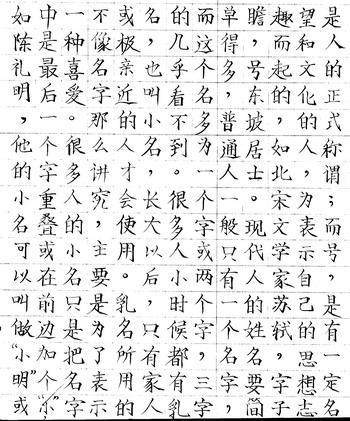 是人的正式称谓；而号，是有一定名
望和文化的人，为表示自己的思想志
趣而起的，如北宋文学家苏轼，字子
瞻，号东坡居士。现代人的姓名要简
单得多，普通人一般只有一个名字，
而这个名多为一个字或两个字，三字
的几乎看不到。很多人小时候都有乳
名，也叫小名，长大以后，只有家人
或极亲近的人才会使用。乳名所用的
不像名字那么讲究，主要是为了表示
一种喜爱。很多人的小名只是把名字
中是最后一个字重叠或在前边加个“小”，
如陈礼明，他的小名可以叫做“小明”或